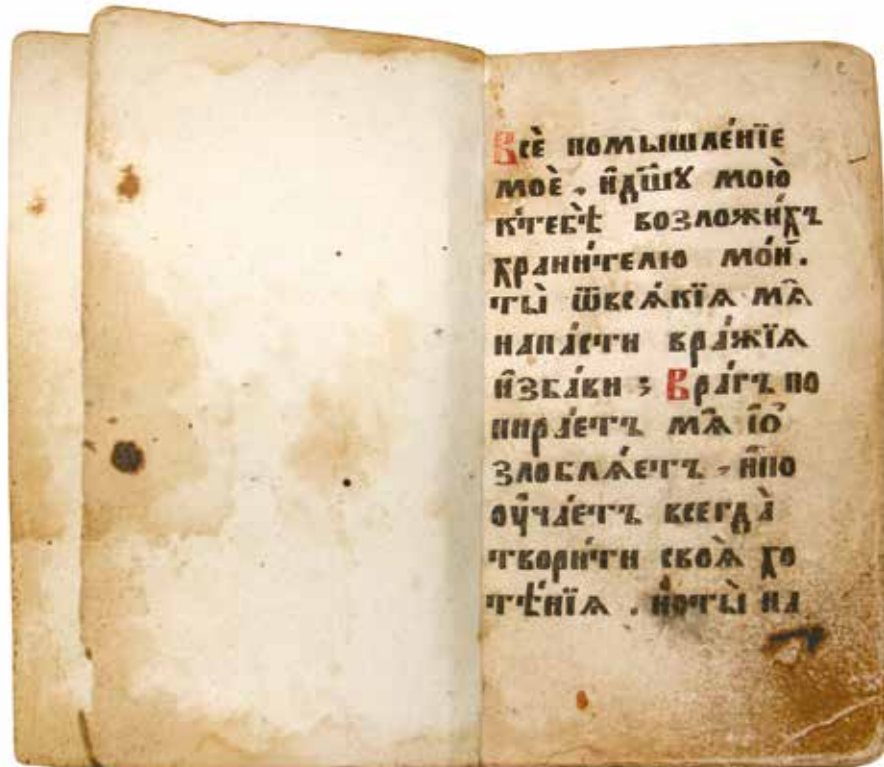 Всѐ помышле́нїе
моѐ , и҆дш҃ꙋ мою̀
к̾тебѣ̀ возложи́хъ
храни́телю мо́й .
ты̀ ѿвсѧ́кїѧ мѧ̑
напа́сти вра́жїѧ
и҆зба́ви ; Вра́гъ по
пира́етъ мѧ̑ їѡ҆
злоблѧ́етъ , и҆по
оу҆ча́етъ всегда̀
твори́ти своѧ̑ хо
тѣ́нїѧ . но҆ты̀ на